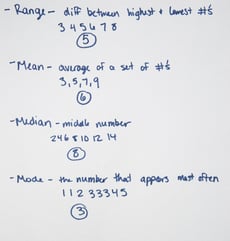 - Range - diff between highest & lowest #'s
3 4 5 6 7 8
5
- Mean - average of a set of #'s
3, 5, 7, 9
6
- Median - middle number
2 4 6 8 10 12 14
8
- Mode - the number that appears most often
1 1 2 3 3 3 4 5
3